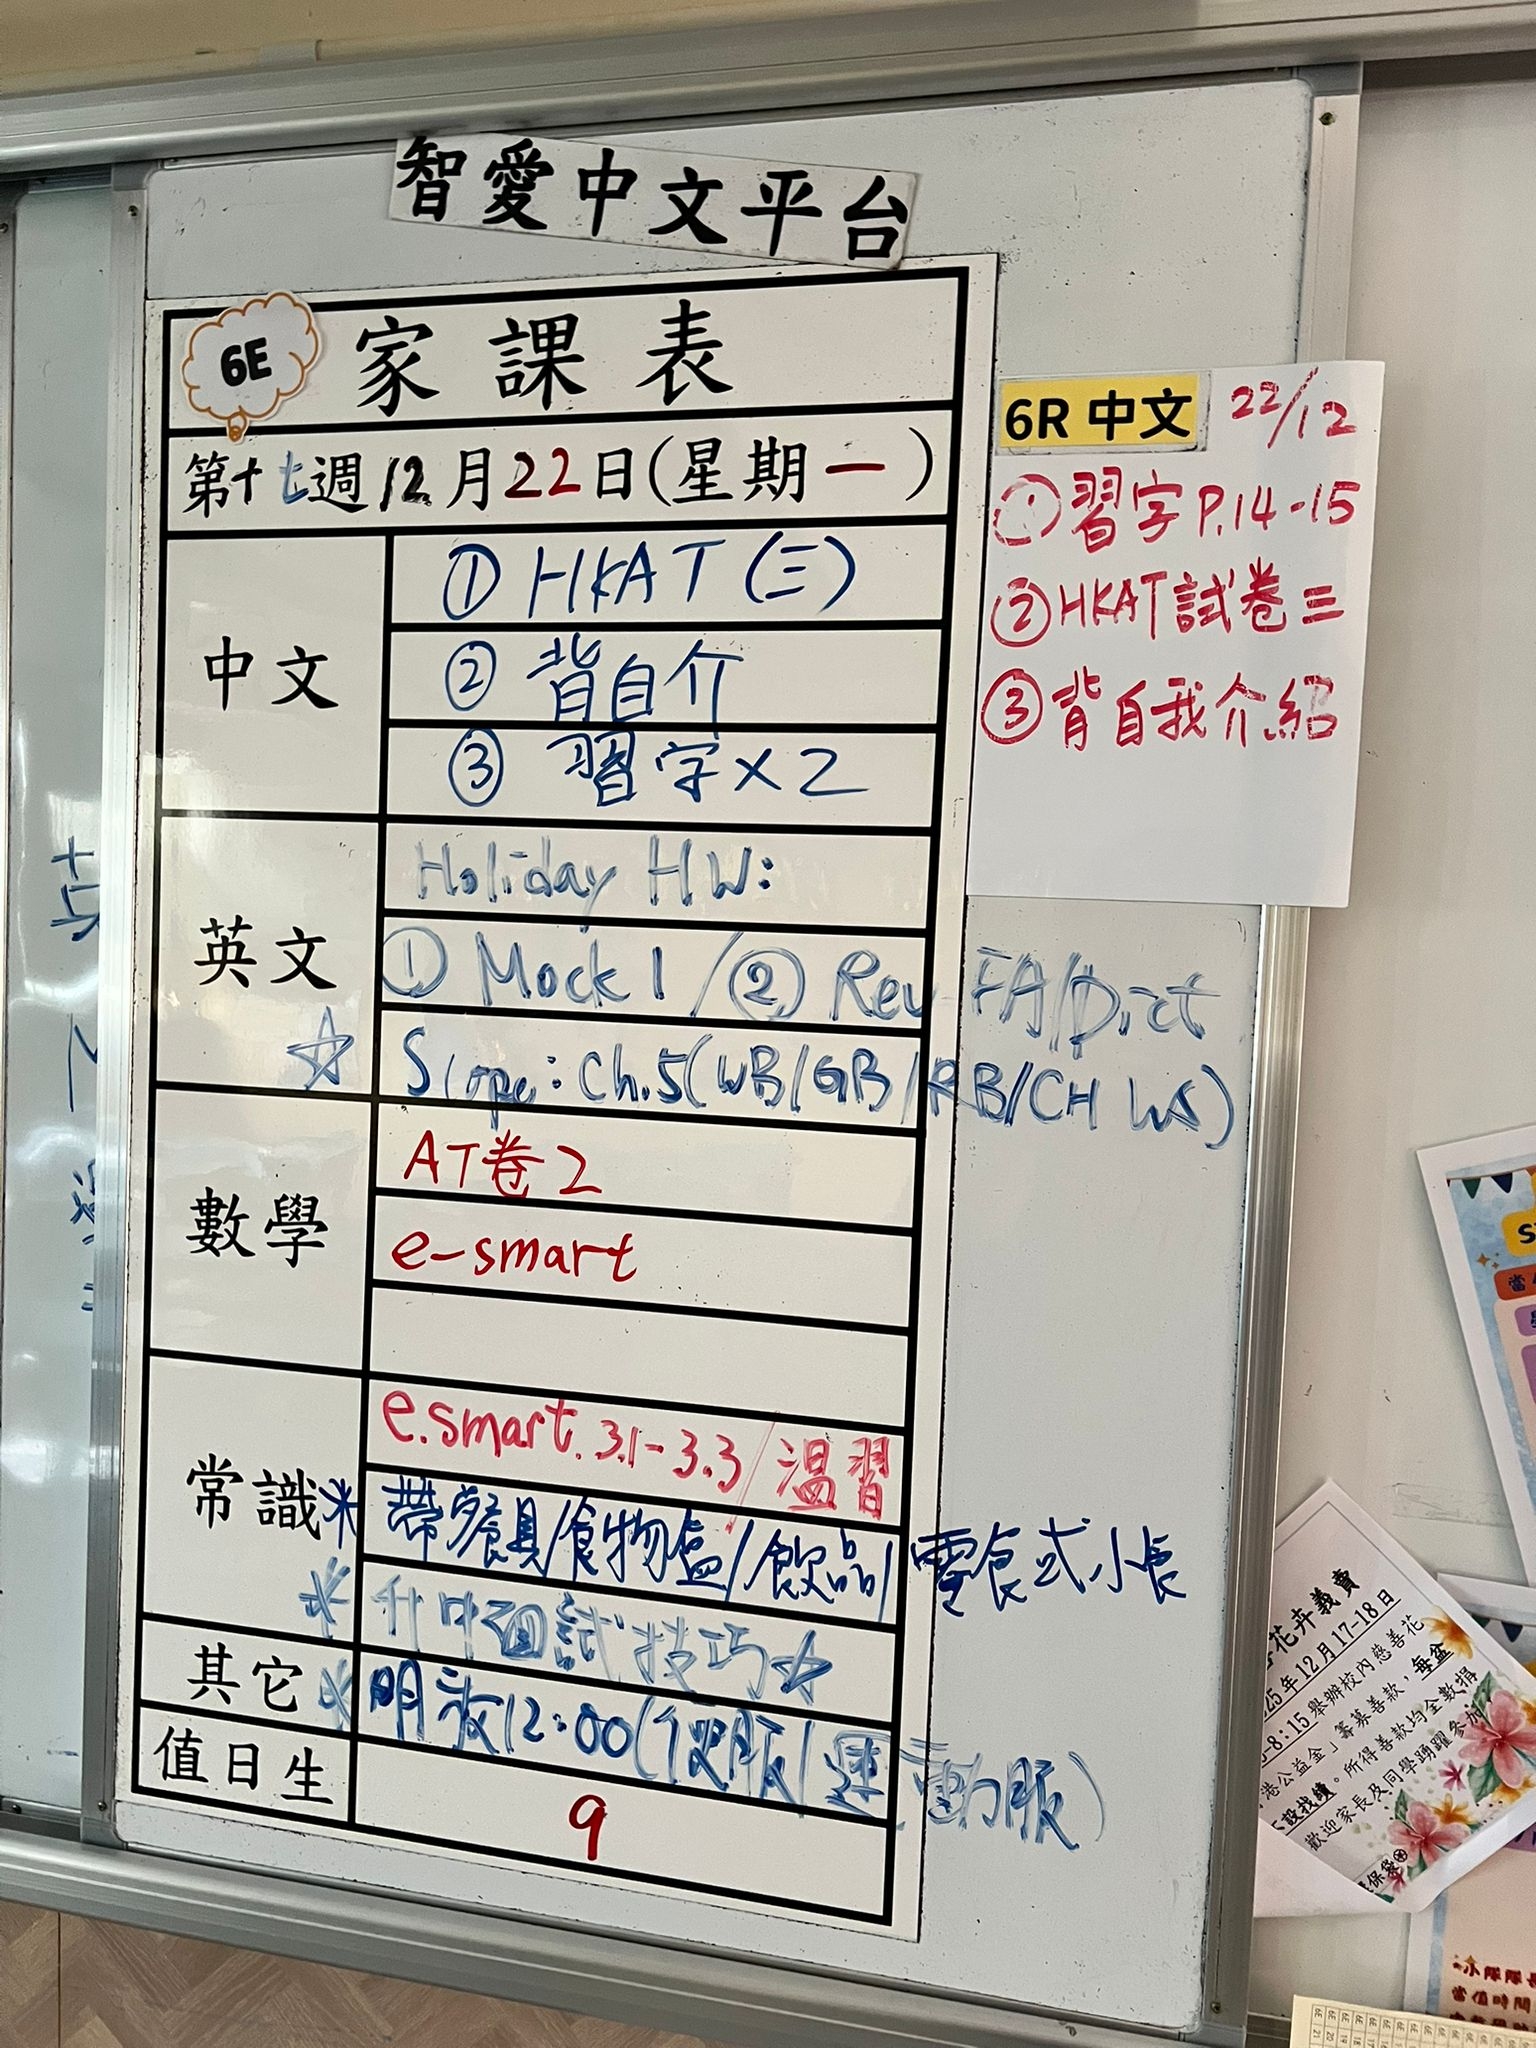 智愛中文平台
6E
家課表
第十七週12月22日(星期一)
中文
① HKAT (三)
② 背自介
③ 習字×2
英文
Holiday HW:
① Mock 1 / ② Rev FA/Dict
☆ Scope: Ch.5(WB/GB/RB/CH WS)
數學
AT卷2
e-smart
常識
e.smart. 3.1-3.3/溫習
* 帶餐具/食物盒/飲品/零食或小食
* 升中面試技巧☆
其它
* 明放12:00(便服/運動服)
值日生
9
6R 中文
22/12
① 習字 P.14-15
② HKAT試卷三
③ 背自我介紹
花卉義賣
25年12月17-18日
-8:15舉辦校內慈善花
港公益金」籌募善款,每盆
設找續。所得善款均全數捐
歡迎家長及同學踴躍參加
保袋
小隊隊
當值時間